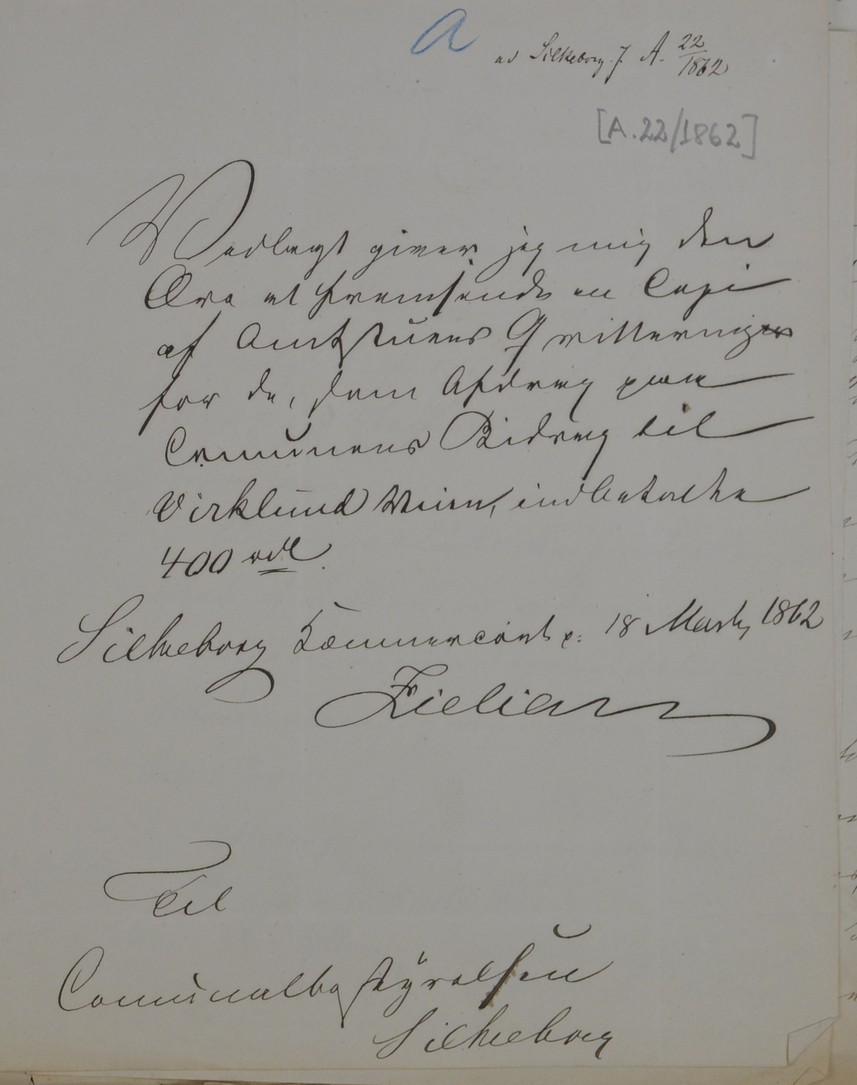 a
ad Silkeborg J. A. 22/1862
[A.22/1862]
Vedlagt giver jeg mig den
Ære at fremsende en Copi
af Amtstuens Qvitteringer
for de, som Afdrag paa
Comunens Bidrag til
Virklund Veien, indbetalte
400 rdl.
Silkeborg Kæmnercont. d. 18 Marts 1862
Til
Comunalbestyrelsen
Silkeborg